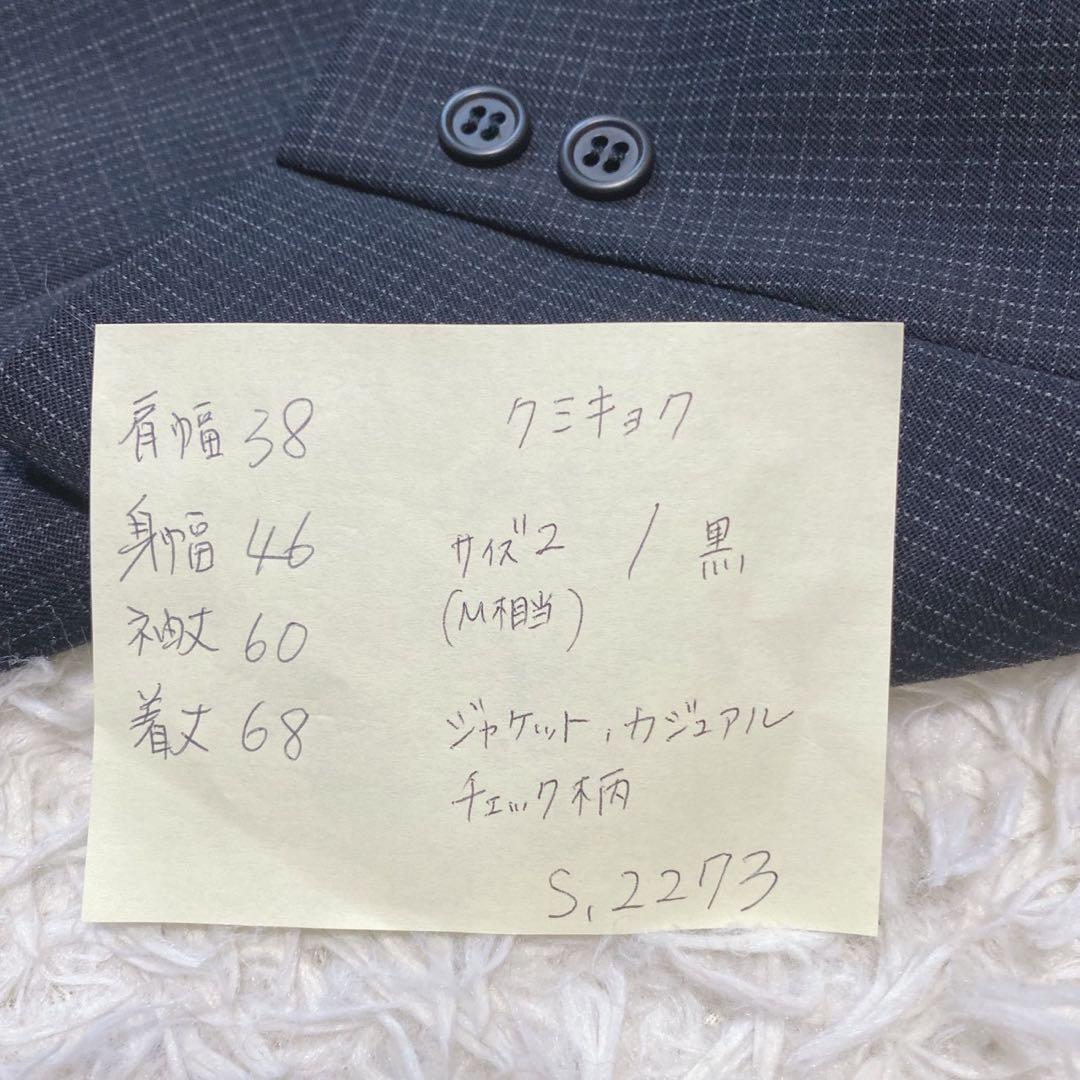 肩幅 38
身幅 46
袖丈 60
着丈 68
クミキョク
サイズ2 / 黒
(M相当)
ジャケット,カジュアル
チェック柄
S,2273